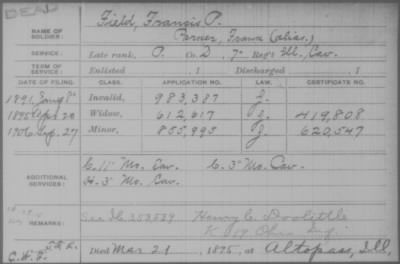 DEAD
Field, Francis P.
NAME OF SOLDIER: Parker, Frank (alias.)
SERVICE: Late rank, P. Co. D, 7" Reg't Ill. Cav.
TERM OF SERVICE: Enlisted , 1 Discharged , 1
DATE OF FILING. CLASS. APPLICATION NO. LAW. CERTIFICATE NO.
1891, Invalid, 983,387 J.
1895 Widow, 612,617 J. 419,808
1906 27 Minor, 855,995 J. 620,547
C. 11" Mo. Cav. C. 3" Mo. Cav.
ADDITIONAL SERVICES: H. 3" Mo. Cav.
Henry C. Doolittle
REMARKS: K 19 Ohio Inf.
Died Mar 21, 1895, at Altopass, Ill,